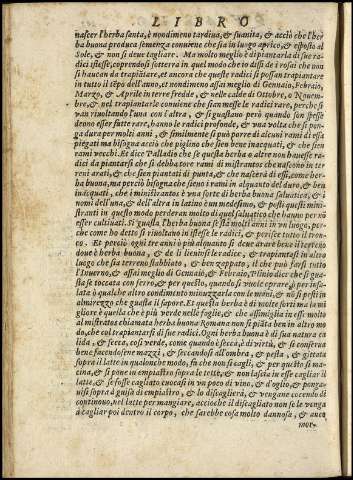 LIBRO
nascer l'herba santa, è nondimeno tardiua, & suanita, & acciò che l'her
ba buona produca semenza conuiene che sia in luogo aprico, & esposto al
Sole, & non si deue tagliare. Ma molto meglio è di piantarla di sue ra-
dici istesse, coprendosi sotterra in quel modo che io dissi de i rosai che non
si haueã da trapiãtare, et ancora che queste radici si possan trapiantare
in tutto il tẽpo dell'anno, et nondimeno assai meglio di Gennaio, Febraio,
Marzo, & Aprile in terre fredde, & nelle calde di Ottobre, o Nouem-
bre, & nel trapiantarle conuiene che sian messe le radici rare, perche si
van riuoltando l'una con l'altra, & si guastano però quando son spesse
deono esser fatte rare, hanno le radici profonde, & una volta che si pon-
ga dura per molti anni, & similmente si può porre di alcuni rami di essa
piegati ma bisogna acciò che piglino che sien bene inacquati, & che sien
rami vecchi. Et dice Palladio che se questa herba o altre non hauesse ra-
dici da piantarsi che si debba torre rami di mistrantos che nascono in ter
reni arati, & che sien piantati di punta, & che nascerà di essi, come her
ba buona, ma perciò bisogna che sieno i rami in alquanto del duro, & ben
inacquati, che i minstrantos è vna sorte di herba buona saluatica, & i
nomi dell'una, & dell'altra in latino è un medesimo, & posti questi min-
stranti in questo modo perderan molto di quel saluatico che hanno per nõ
esser cultiuati. Si guasta l'herba buona se stà molti anni in vn luogo, per-
che come ho detto si riuoltono in stesse le radici, & perisce tutto il tron-
co. Et perciò ogni tre anni ò più alquanto si deue arare bene il terreno
doue è herba buona, & de lì lieuinsi le radice, & trapiantasi in altro
luogo che sia terreno stabbiato, & ben zappato, il che può farsi tutto
l'Inuerno, & assai meglio di Gennaio, & Febraio, Plinio dice che si gua-
sta se toccata con ferro, & per questo, quando si vuole oprare, ò per insa-
lata ò qualche altro condimento smuzzarla con le mani, & nõ si pesti in
almarezzo che guasta il sapore. Et questa herba è di molte sorti ma la mi
gliore è quella che è più verde nelle foglie, & che assimiglia in essi molto
al mistrãtos chiamata herba buona Romana non si piãta ben in altro mo
do, che col trapiantarsi di sue radici. Ogni herba buona è di sua natura ca
lida, & secca, così verde, come quando è secca, è di virtù, & si conserua
bene facendosene mazzi, & seccandosi all'ombra, & pesta, & gittata
sopra il latte in qualonche modo, fà che non si cagli, & per questo si ma-
cina, & si pone in empiastro sopra le tette, & non lascia in esse cagliar il
latte, & se fosse cagliato cuocasi in vn poco di vino, & d'oglio, & ponga-
uisi sopra à guisa di empiastro, & lo discaglierà, & vengane cocendo di
continouo, nel latte per mangiare, acciò che il discagliato non se le venga
à cagliar poi dentro il corpo, che sarebbe cosa molto dannosa, & anco
mor-